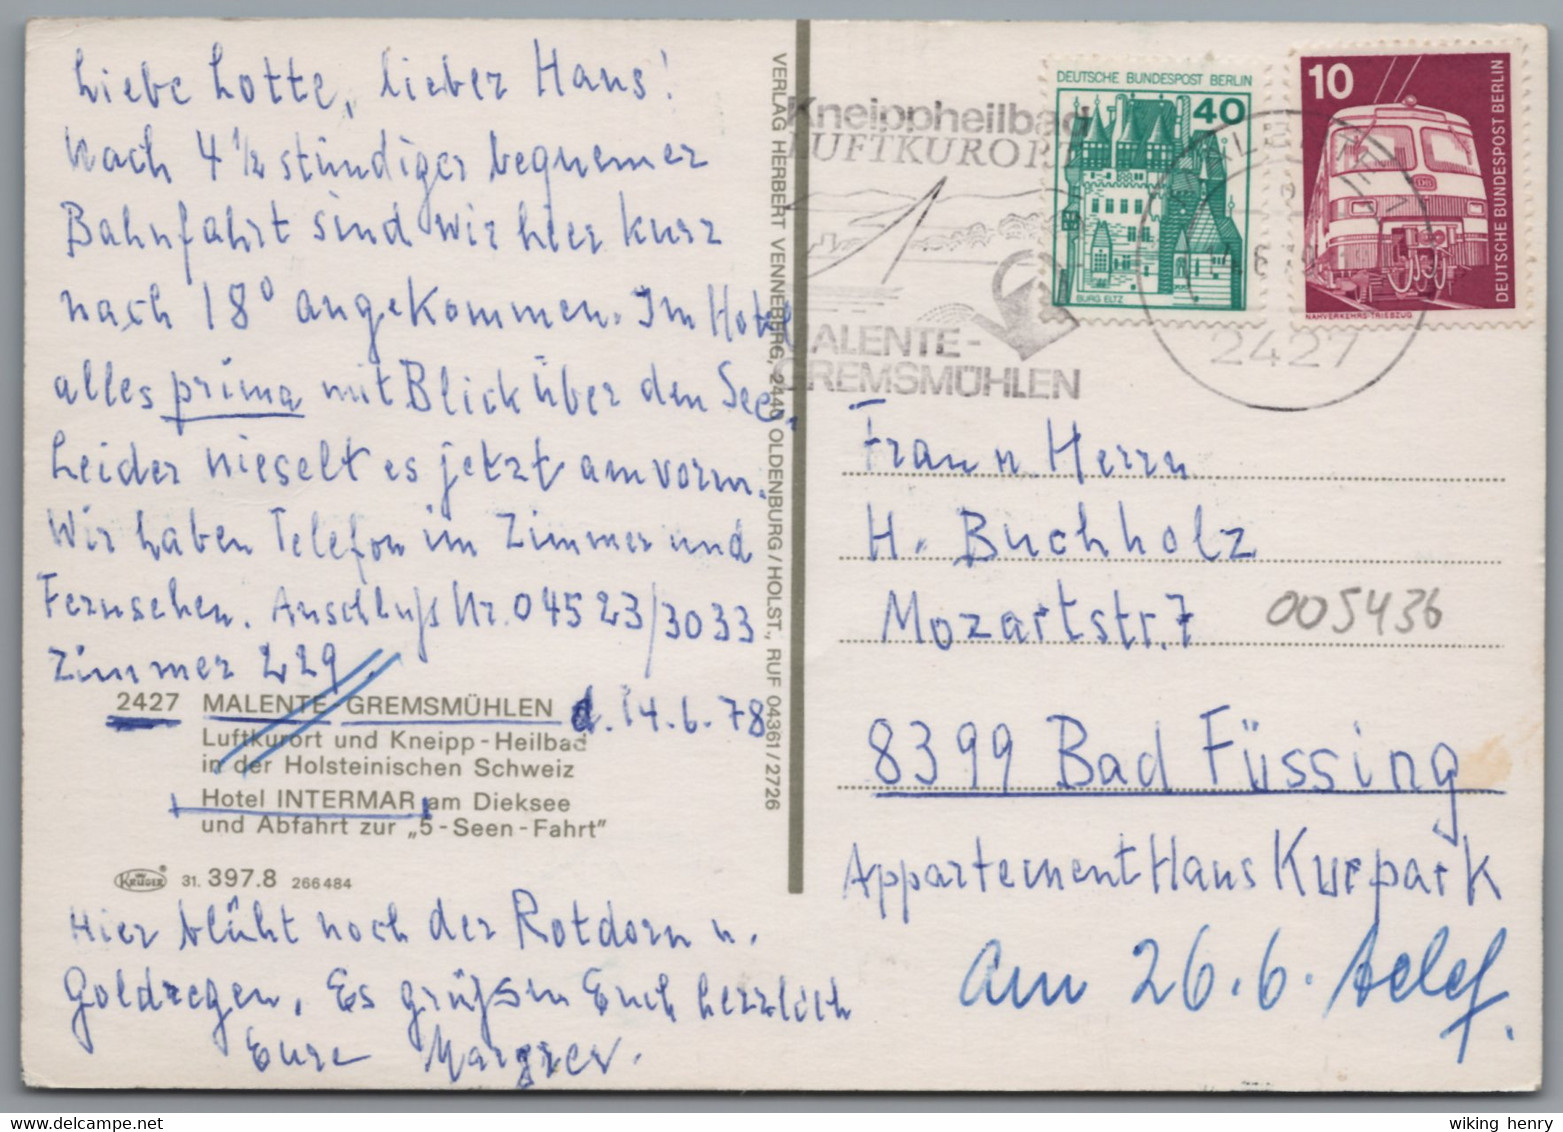 Liebe Lotte, lieber Hans!
Nach 4 ½ stündiger bequemer
Bahnfahrt sind wir hier kurz
nach 18⁰ angekommen. Im Hotel
alles prima mit Blick über den See.
Leider nieselt es jetzt am vorm.
Wir haben Telefon im Zimmer und
Fernsehen. Anschluß Nr. 04523/3033
Zimmer 229.
d. 14.6.78
2427 MALENTE GREMSMÜHLEN
Luftkurort und Kneipp-Heilbad
in der Holsteinischen Schweiz
Hotel INTERMAR am Dieksee
und Abfahrt zur „5-Seen-Fahrt"
KRÜGER 31. 397.8 266484
Hier blüht noch der Rotdorn u.
Goldregen. Es grüßen Euch herzlich
Eure
VERLAG HERBERT VENNEBERG, 2440 OLDENBURG/HOLST., RUF 04361/2726
Kneippheilbad
LUFTKURORT
MALENTE-
GREMSMÜHLEN
DEUTSCHE BUNDESPOST BERLIN
40
BURG ELTZ
10
DEUTSCHE BUNDESPOST BERLIN
NAHVERKEHRS-TRIEBZUG
2427
Frau u. Herrn
H. Buchholz
Mozartstr. 7
005436
8399 Bad Füssing
Appartement Haus Kurpark
am 26.6. telef.
wiking henry